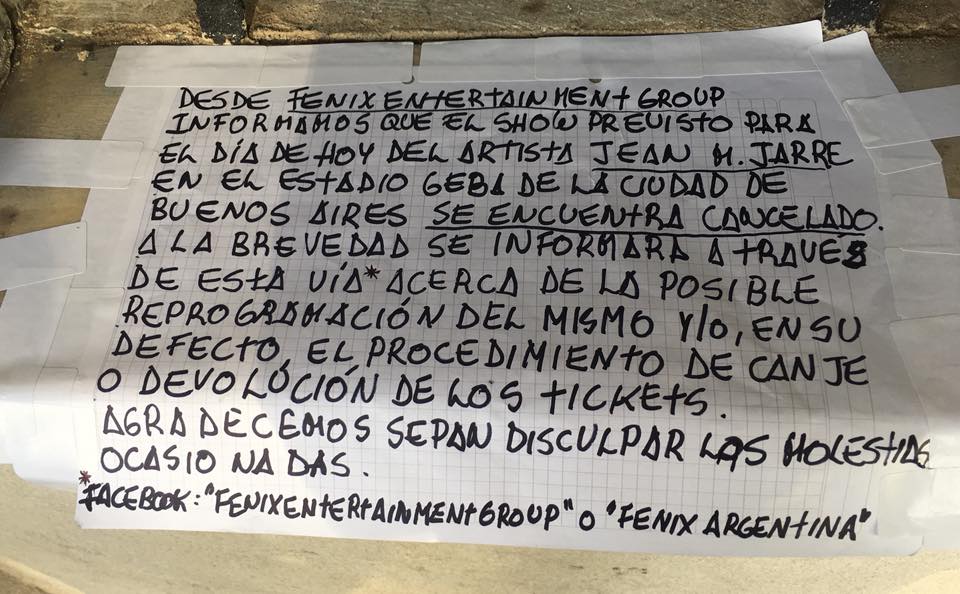 DESDE FENIX ENTERTAINMENT GROUP
INFORMAMOS QUE EL SHOW PREVISTO PARA
EL DÍA DE HOY DEL ARTISTA JEAN M. JARRE
EN EL ESTADIO GEBA DE LA CIUDAD DE
BUENOS AIRES SE ENCUENTRA CANCELADO.
A LA BREVEDAD SE INFORMARA A TRAVES
DE ESTA VÍA* ACERCA DE LA POSIBLE
REPROGRAMACIÓN DEL MISMO Y/O, EN SU
DEFECTO, EL PROCEDIMIENTO DE CANJE
O DEVOLUCIÓN DE LOS TICKETS.
AGRADECEMOS SEPAN DISCULPAR LAS MOLESTIAS
OCASIONADAS.
*FACEBOOK: "FENIXENTERTAINMENTGROUP" O "FENIX ARGENTINA"